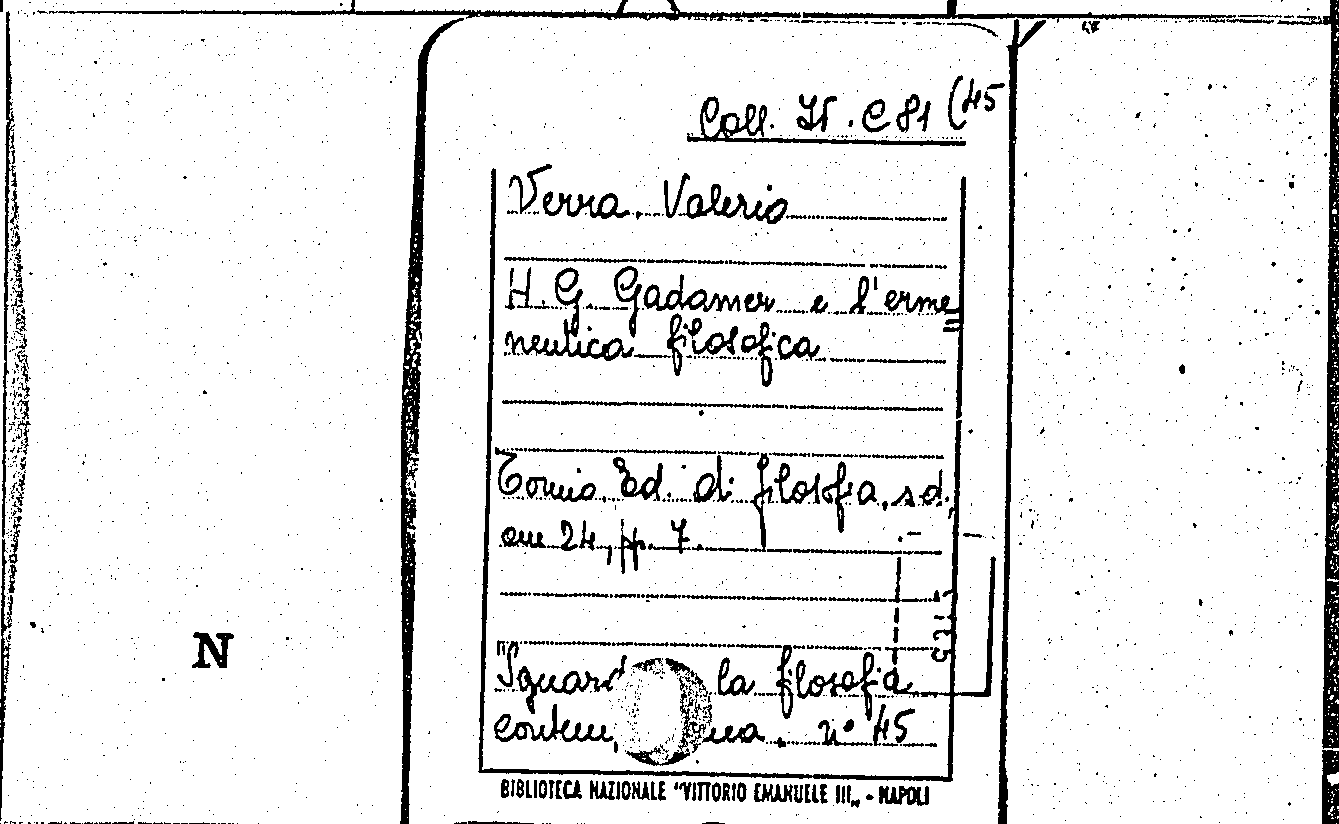 Coll. It. C 81 (45
Verra. Valerio
H. G. Gadamer e l'erme=
neutica filosofica
Torino. Ed. di filosofia, sd.
cm 24, pp. 7.
"Sguard la filosofia
contem nea. n° 45
N
BIBLIOTECA NAZIONALE "VITTORIO EMANUELE III„ - NAPOLI